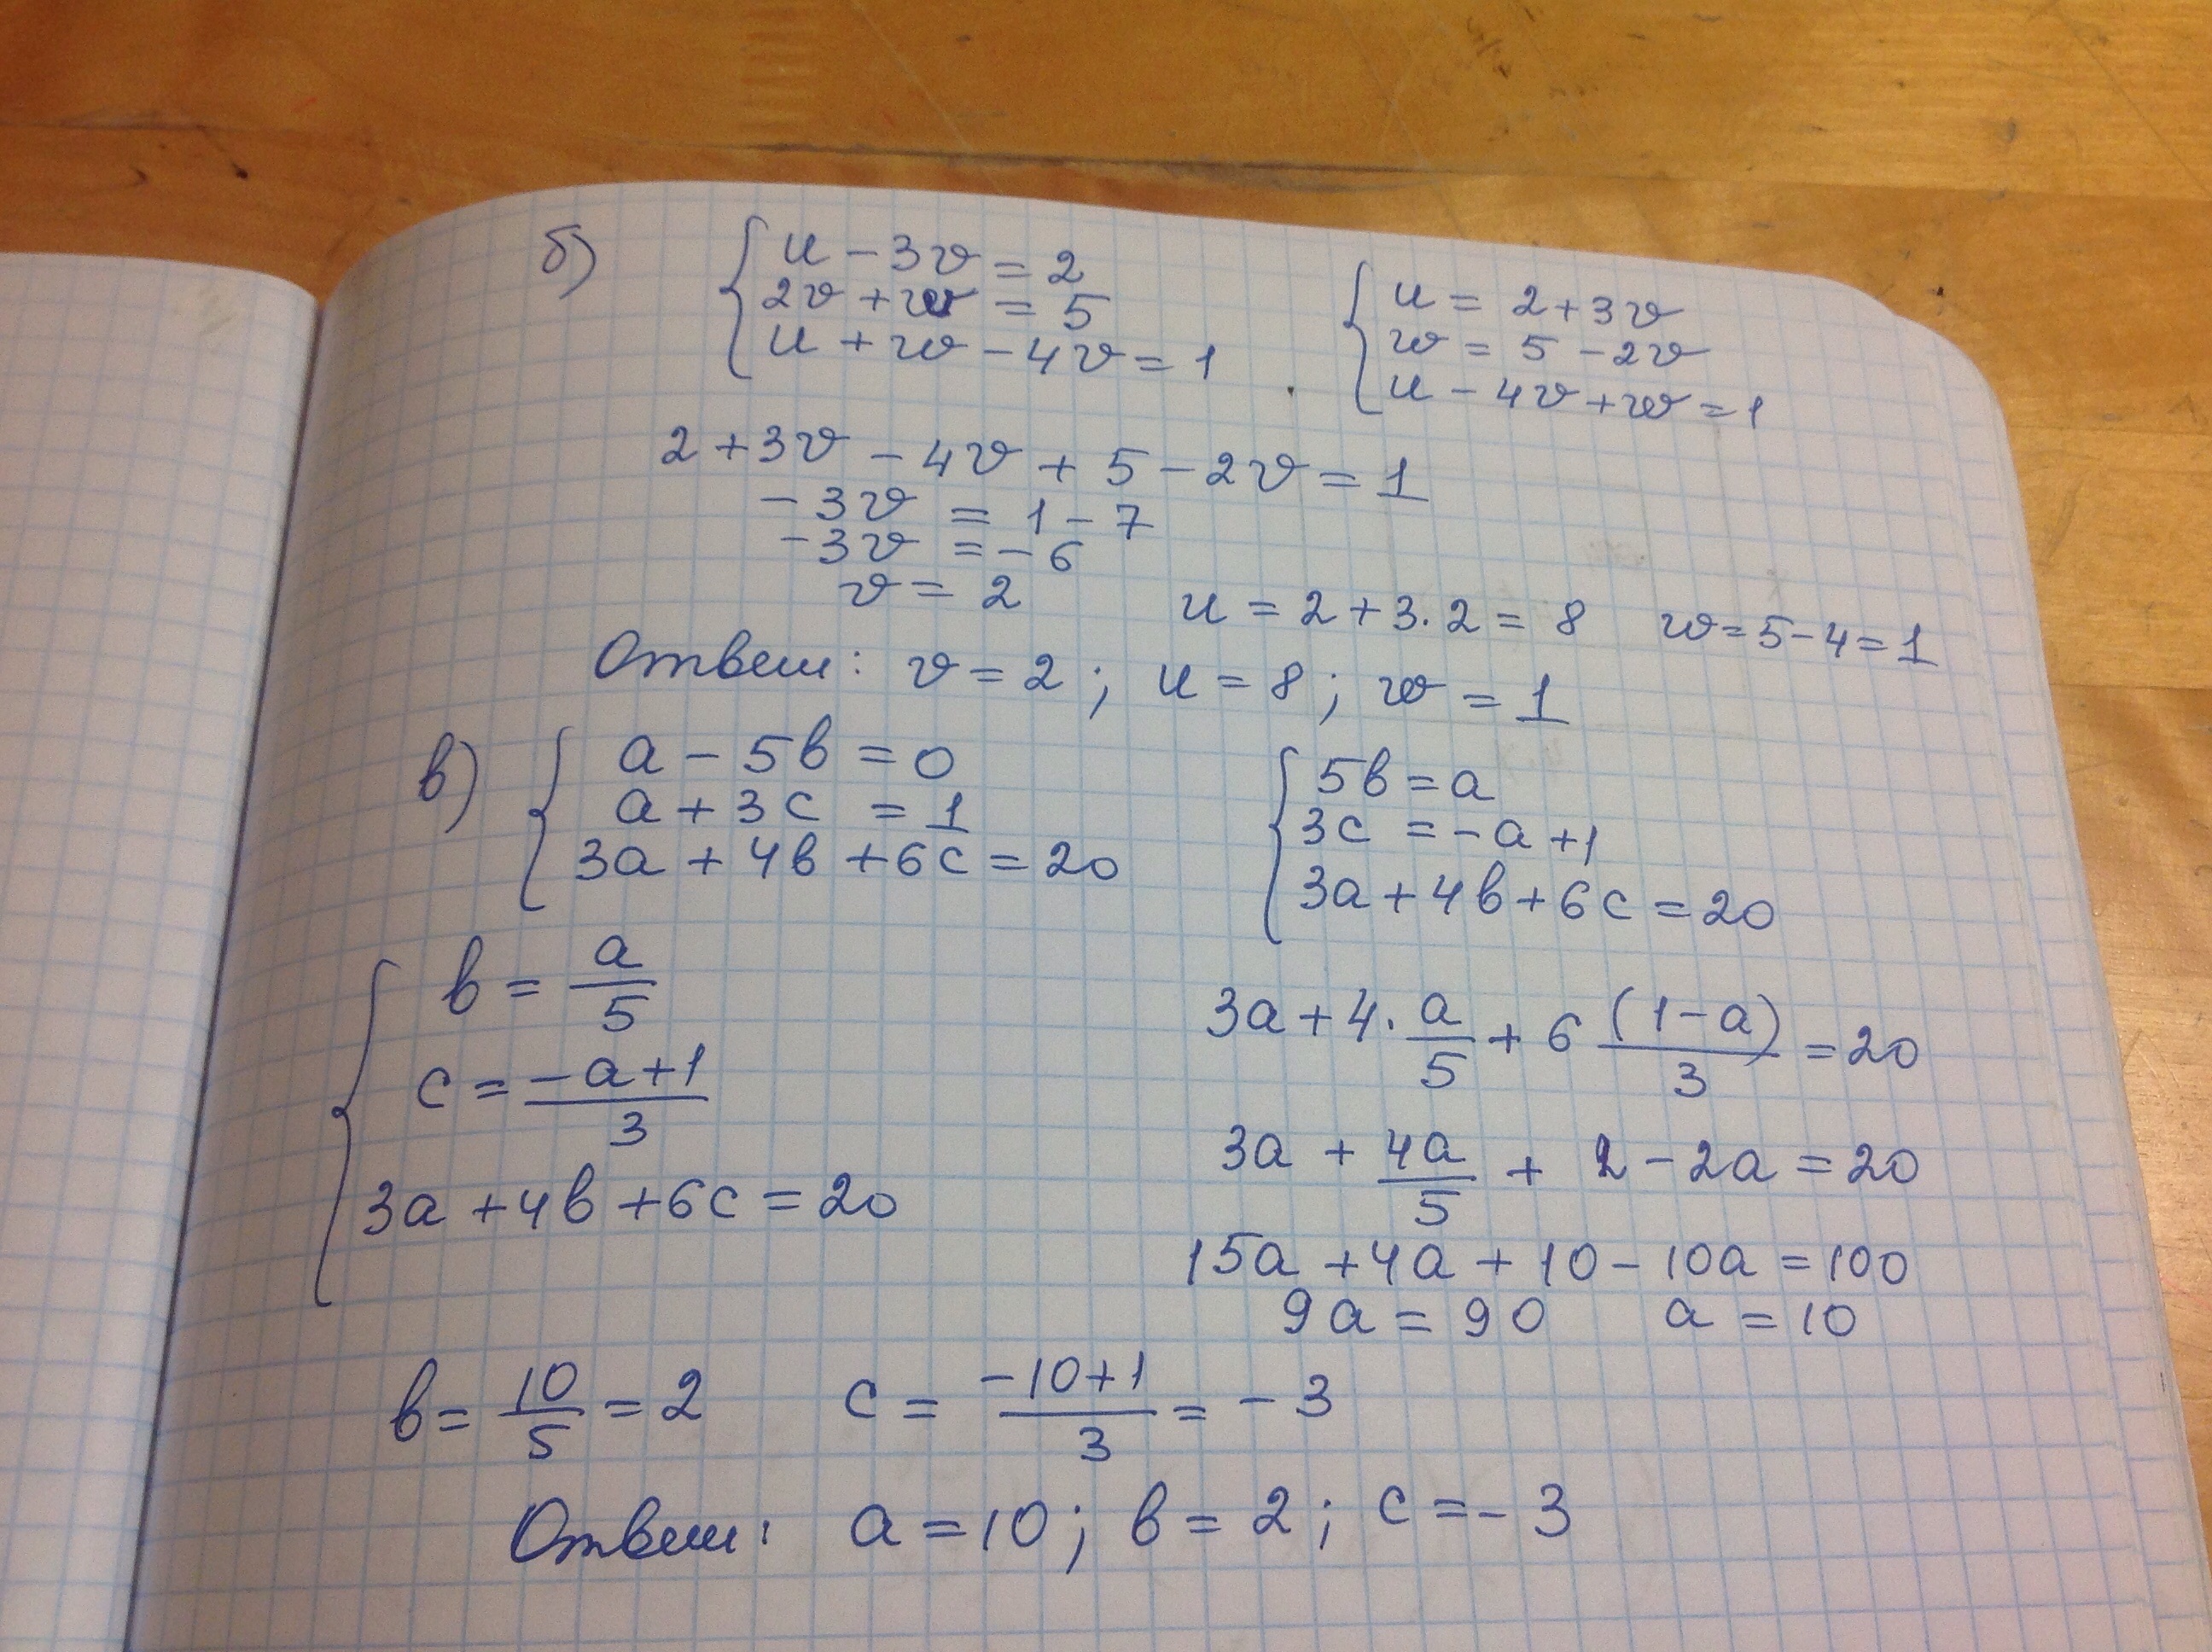 б) { u - 3v = 2
2v + w = 5
u + w - 4v = 1
{ u = 2 + 3v
w = 5 - 2v
u - 4v + w = 1
2 + 3v - 4v + 5 - 2v = 1
-3v = 1 - 7
-3v = -6
v = 2 u = 2 + 3 · 2 = 8 w = 5 - 4 = 1
Ответ: v = 2 ; u = 8 ; w = 1
в) { a - 5b = 0
a + 3c = 1
3a + 4b + 6c = 20
{ 5b = a
3c = -a + 1
3a + 4b + 6c = 20
{ b = a/5
c = (-a+1)/3
3a + 4b + 6c = 20
3a + 4 · a/5 + 6 (1-a)/3 = 20
3a + 4a/5 + 2 - 2a = 20
15a + 4a + 10 - 10a = 100
9a = 90 a = 10
b = 10/5 = 2 c = (-10+1)/3 = -3
Ответ: a = 10 ; b = 2 ; c = -3